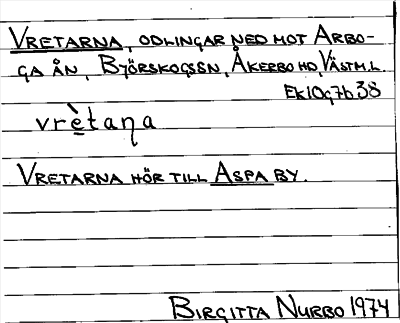 VRETARNA, ODLINGAR NED MOT ARBO-
GA ÅN, BJÖRSKOGSSN, ÅKERBO HD, VÄSTM.L.
EK10g7b38
vrètaṇa
VRETARNA HÖR TILL ASPA BY.
BIRGITTA NURBO 1974